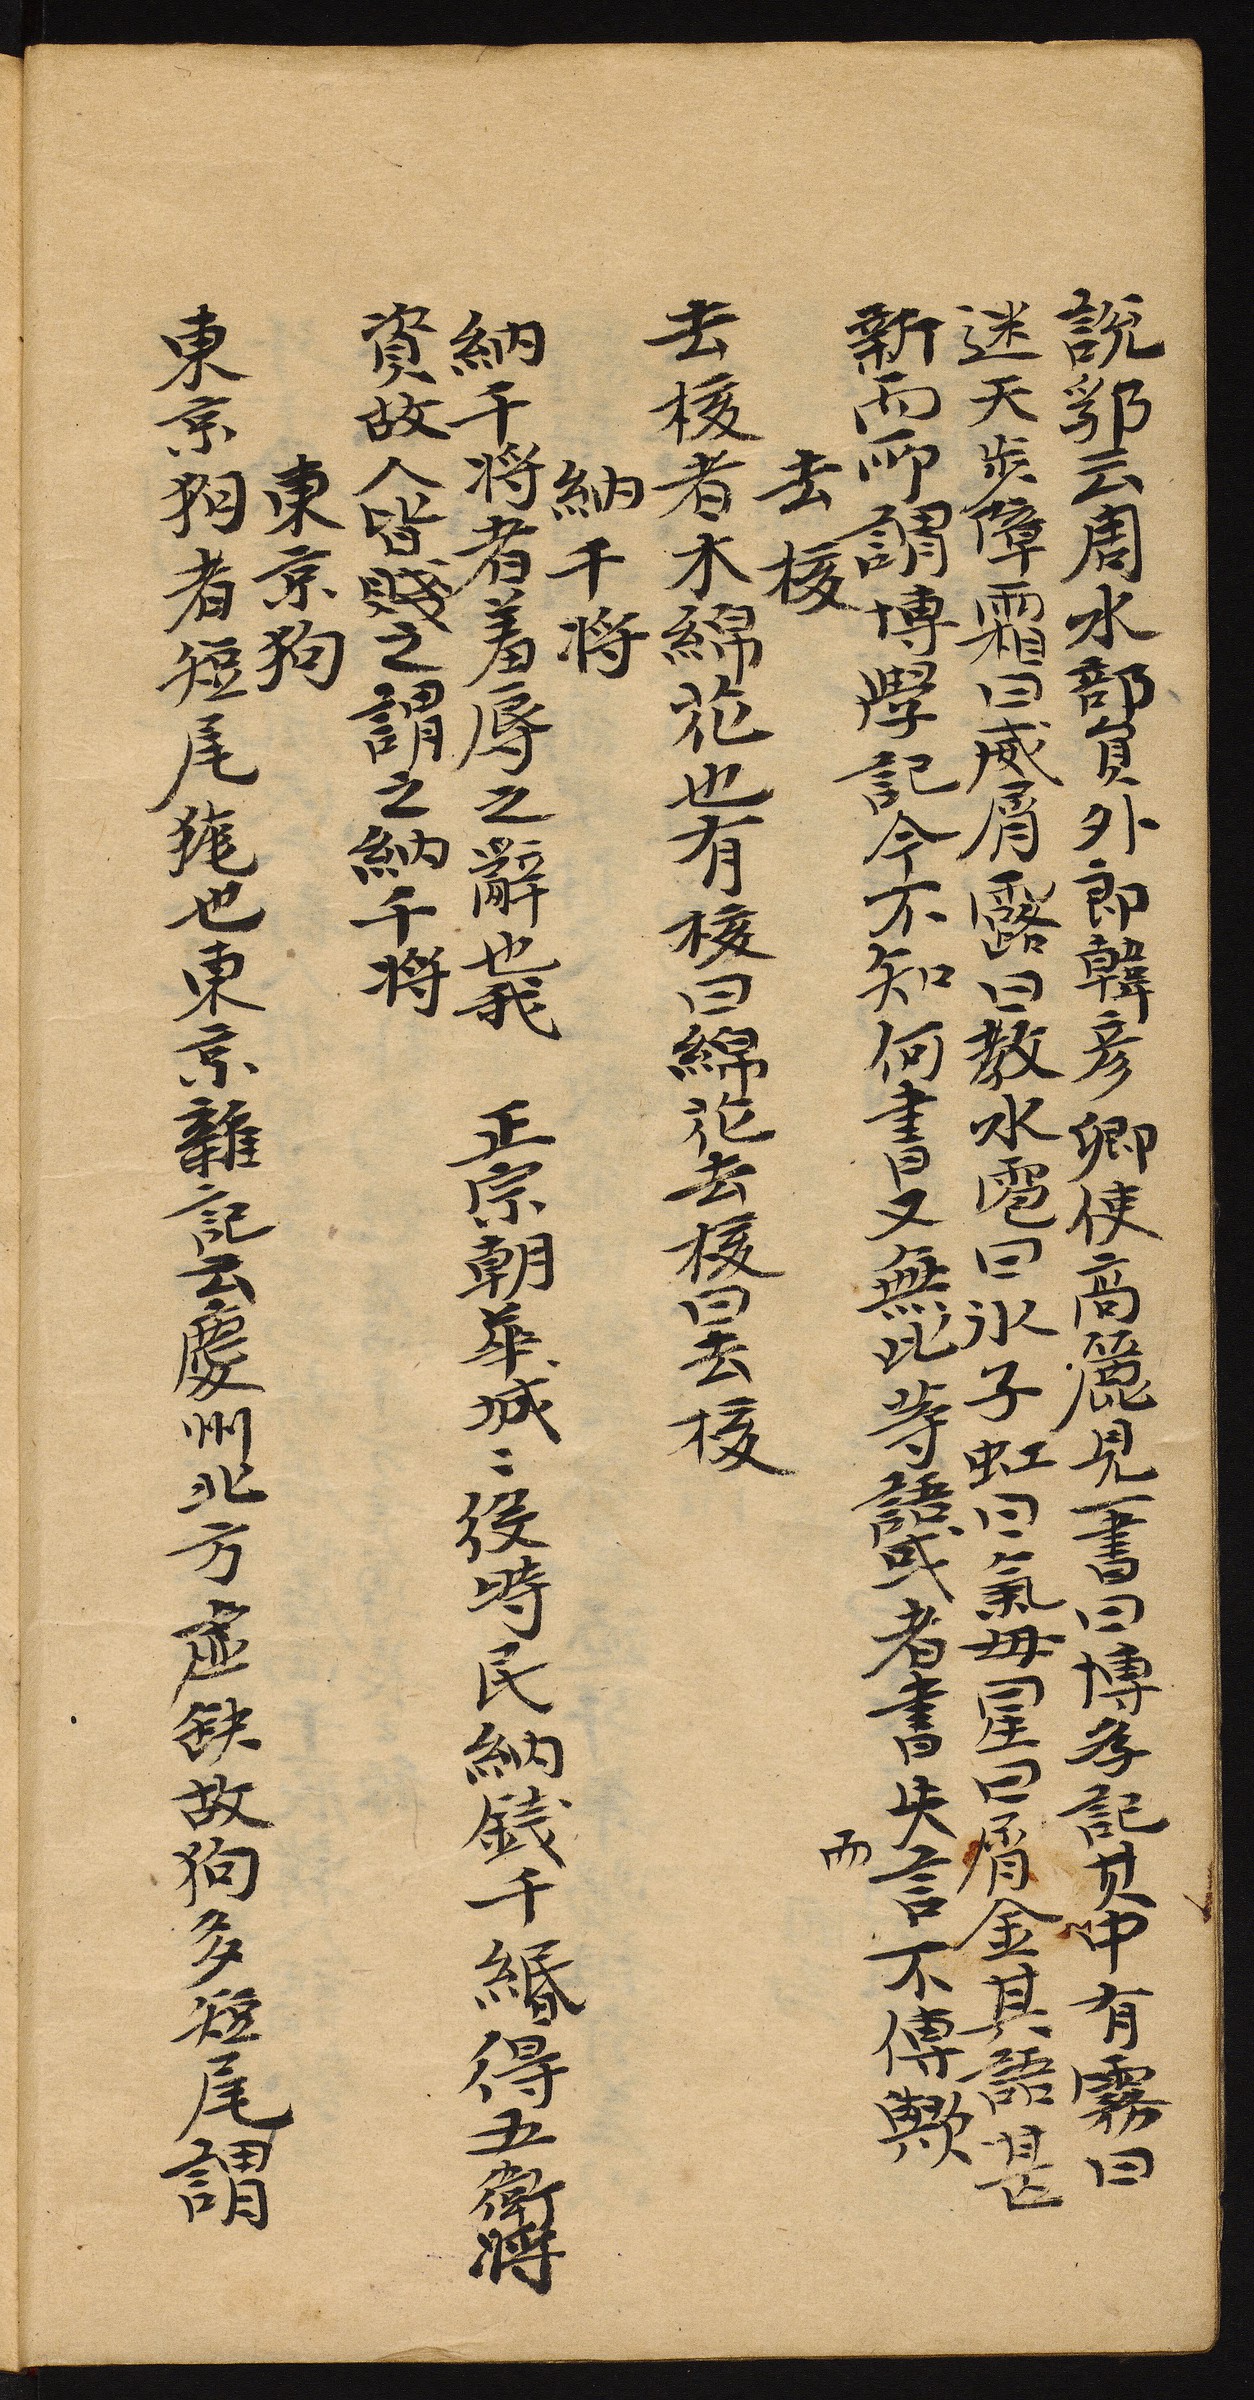 說郛云周水部員外郎韓彦卿使高麗見一書曰博孝記其中有霧曰
迷天步障霜曰威屑露曰教水雹曰氷子虹曰氣母星曰屑金其語甚
新而所謂博學記今不知何書又無此等語或者書失言不傳歟
而
去核
去核者木綿花也有核曰綿花去核曰去核
納千将
納千将者羞辱之辭也我 正宗朝華城〻役時民納銭千緡得五衛将
資故人皆賤之謂之納千将
東京狗
東京狗者短尾㹱也東京雜記云慶州北方虚缺故狗多短尾謂